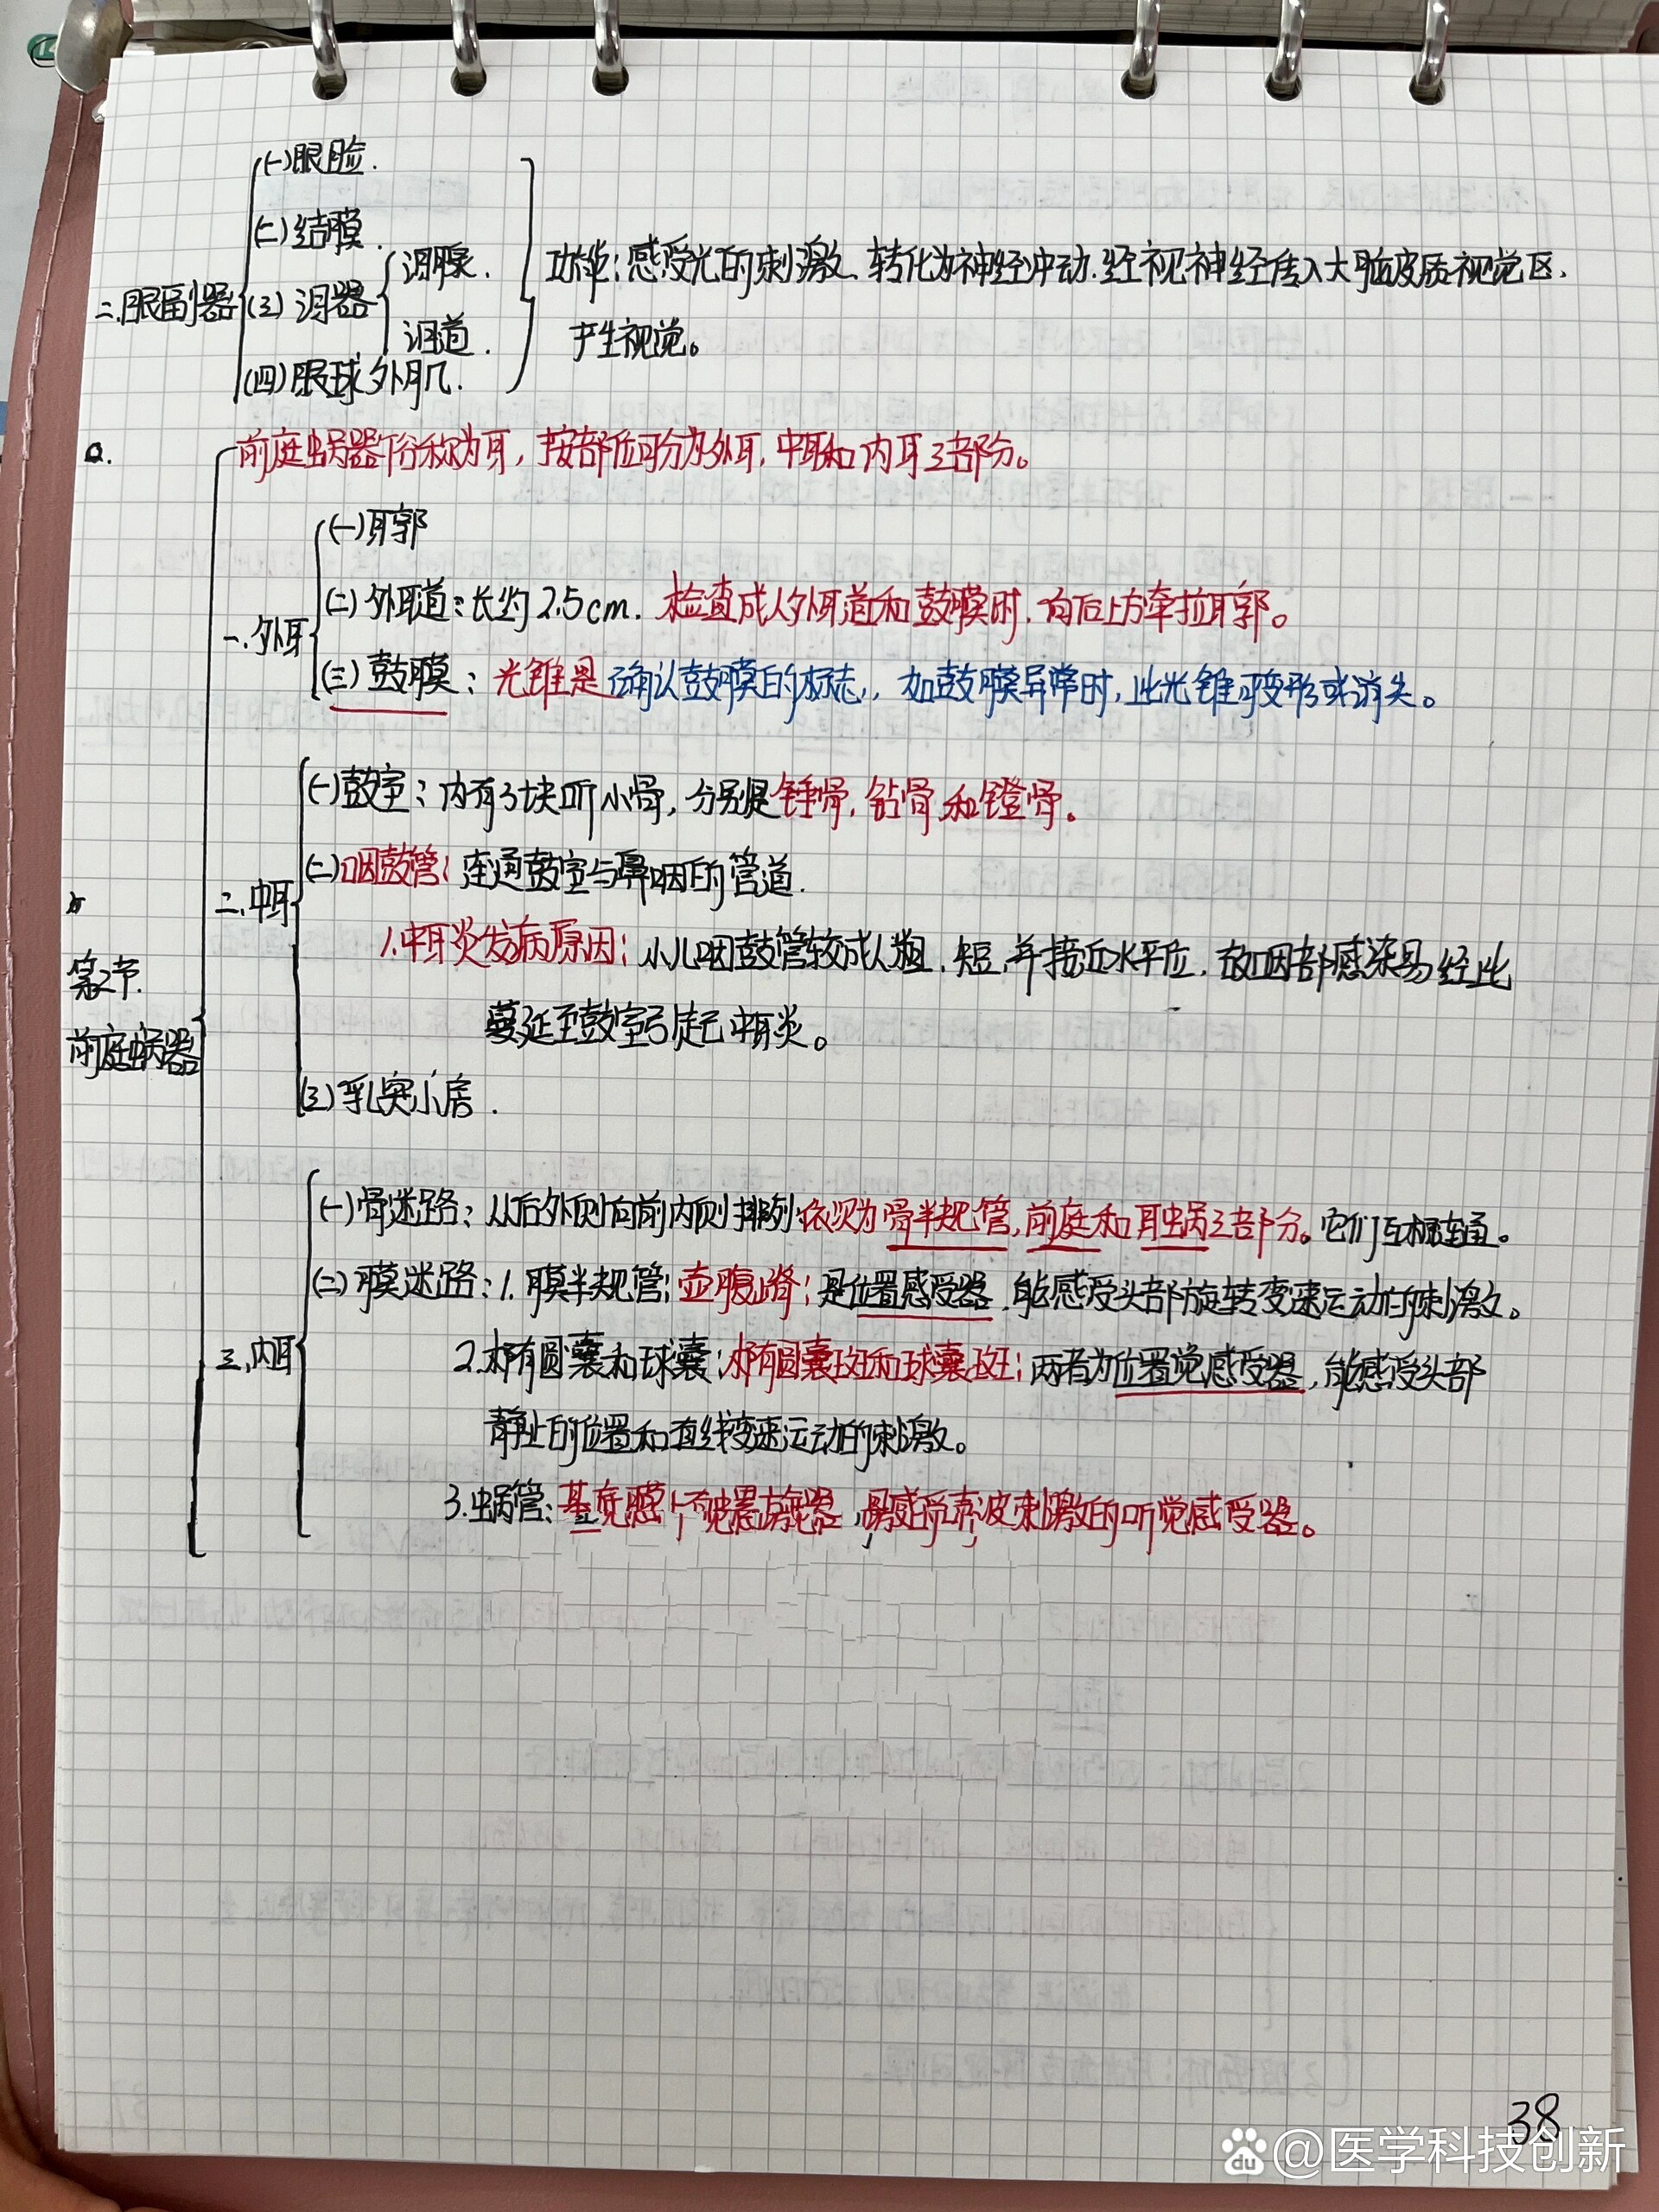 (一)眼睑.
(二)结膜.
二.眼副器 (三)泪器 泪腺.
泪道.
(四)眼球外肌.
功能:感受光的刺激、转化为神经冲动.经视神经传入大脑皮质视觉区,
产生视觉。
前庭蜗器俗称为耳,按部位可分为外耳,中耳和内耳三部分。
第2节.
前庭蜗器
一.外耳
(一)耳郭
(二)外耳道:长约2.5cm.检查成人外耳道和鼓膜时,向后上方牵拉耳郭。
(三)鼓膜:光锥是确认鼓膜的标志,如鼓膜异常时,此光锥可变形或消失。
二.中耳
(一)鼓室:内有3块听小骨,分别是锤骨,钻骨和镫骨。
(二)咽鼓管:连通鼓室与鼻咽的管道.
1.中耳炎发病原因:小儿咽鼓管较成人粗、短,并接近水平位,故咽部感染易经此
蔓延至鼓室引起中耳炎。
(三)乳突小房.
三.内耳
(一)骨迷路:从后外侧向前内侧排列依次为骨半规管,前庭和耳蜗三部分。它们互相连通。
(二)膜迷路:1.膜半规管:壶腹嵴:是位置感受器,能感受头部旋转变速运动的刺激。
2.椭圆囊和球囊:椭圆囊斑和球囊斑:两者为位置觉感受器,能感受头部
静止的位置和直线变速运动的刺激。
3.蜗管:基底膜 是感受声波刺激的听觉感受器。
38
du @医学科技创新